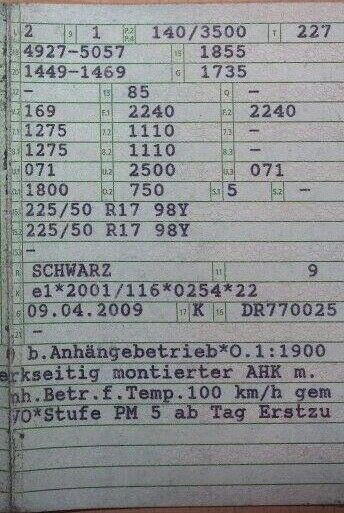 L 2 9 1 P.2 P.4 140/3500 T 227
18 4927-5057 19 1855
20 1449-1469 G 1735
12 - 13 85 Q -
V.7 169 F.1 2240 F.2 2240
7.1 1275 7.2 1110 7.3 -
8.1 1275 8.2 1110 8.3 -
U.1 071 U.2 2500 U.3 071
O.1 1800 O.2 750 S.1 5 S.2 -
15.1 225/50 R17 98Y
15.2 225/50 R17 98Y
15.3 -
R SCHWARZ 11 9
K e1*2001/116*0254*22
6 09.04.2009 17 K 16 DR770025
21 -
b.Anhängebetrieb*O.1:1900
erkseitig montierter AHK m.
nh.Betr.f.Temp.100 km/h gem
VO*Stufe PM 5 ab Tag Erstzu